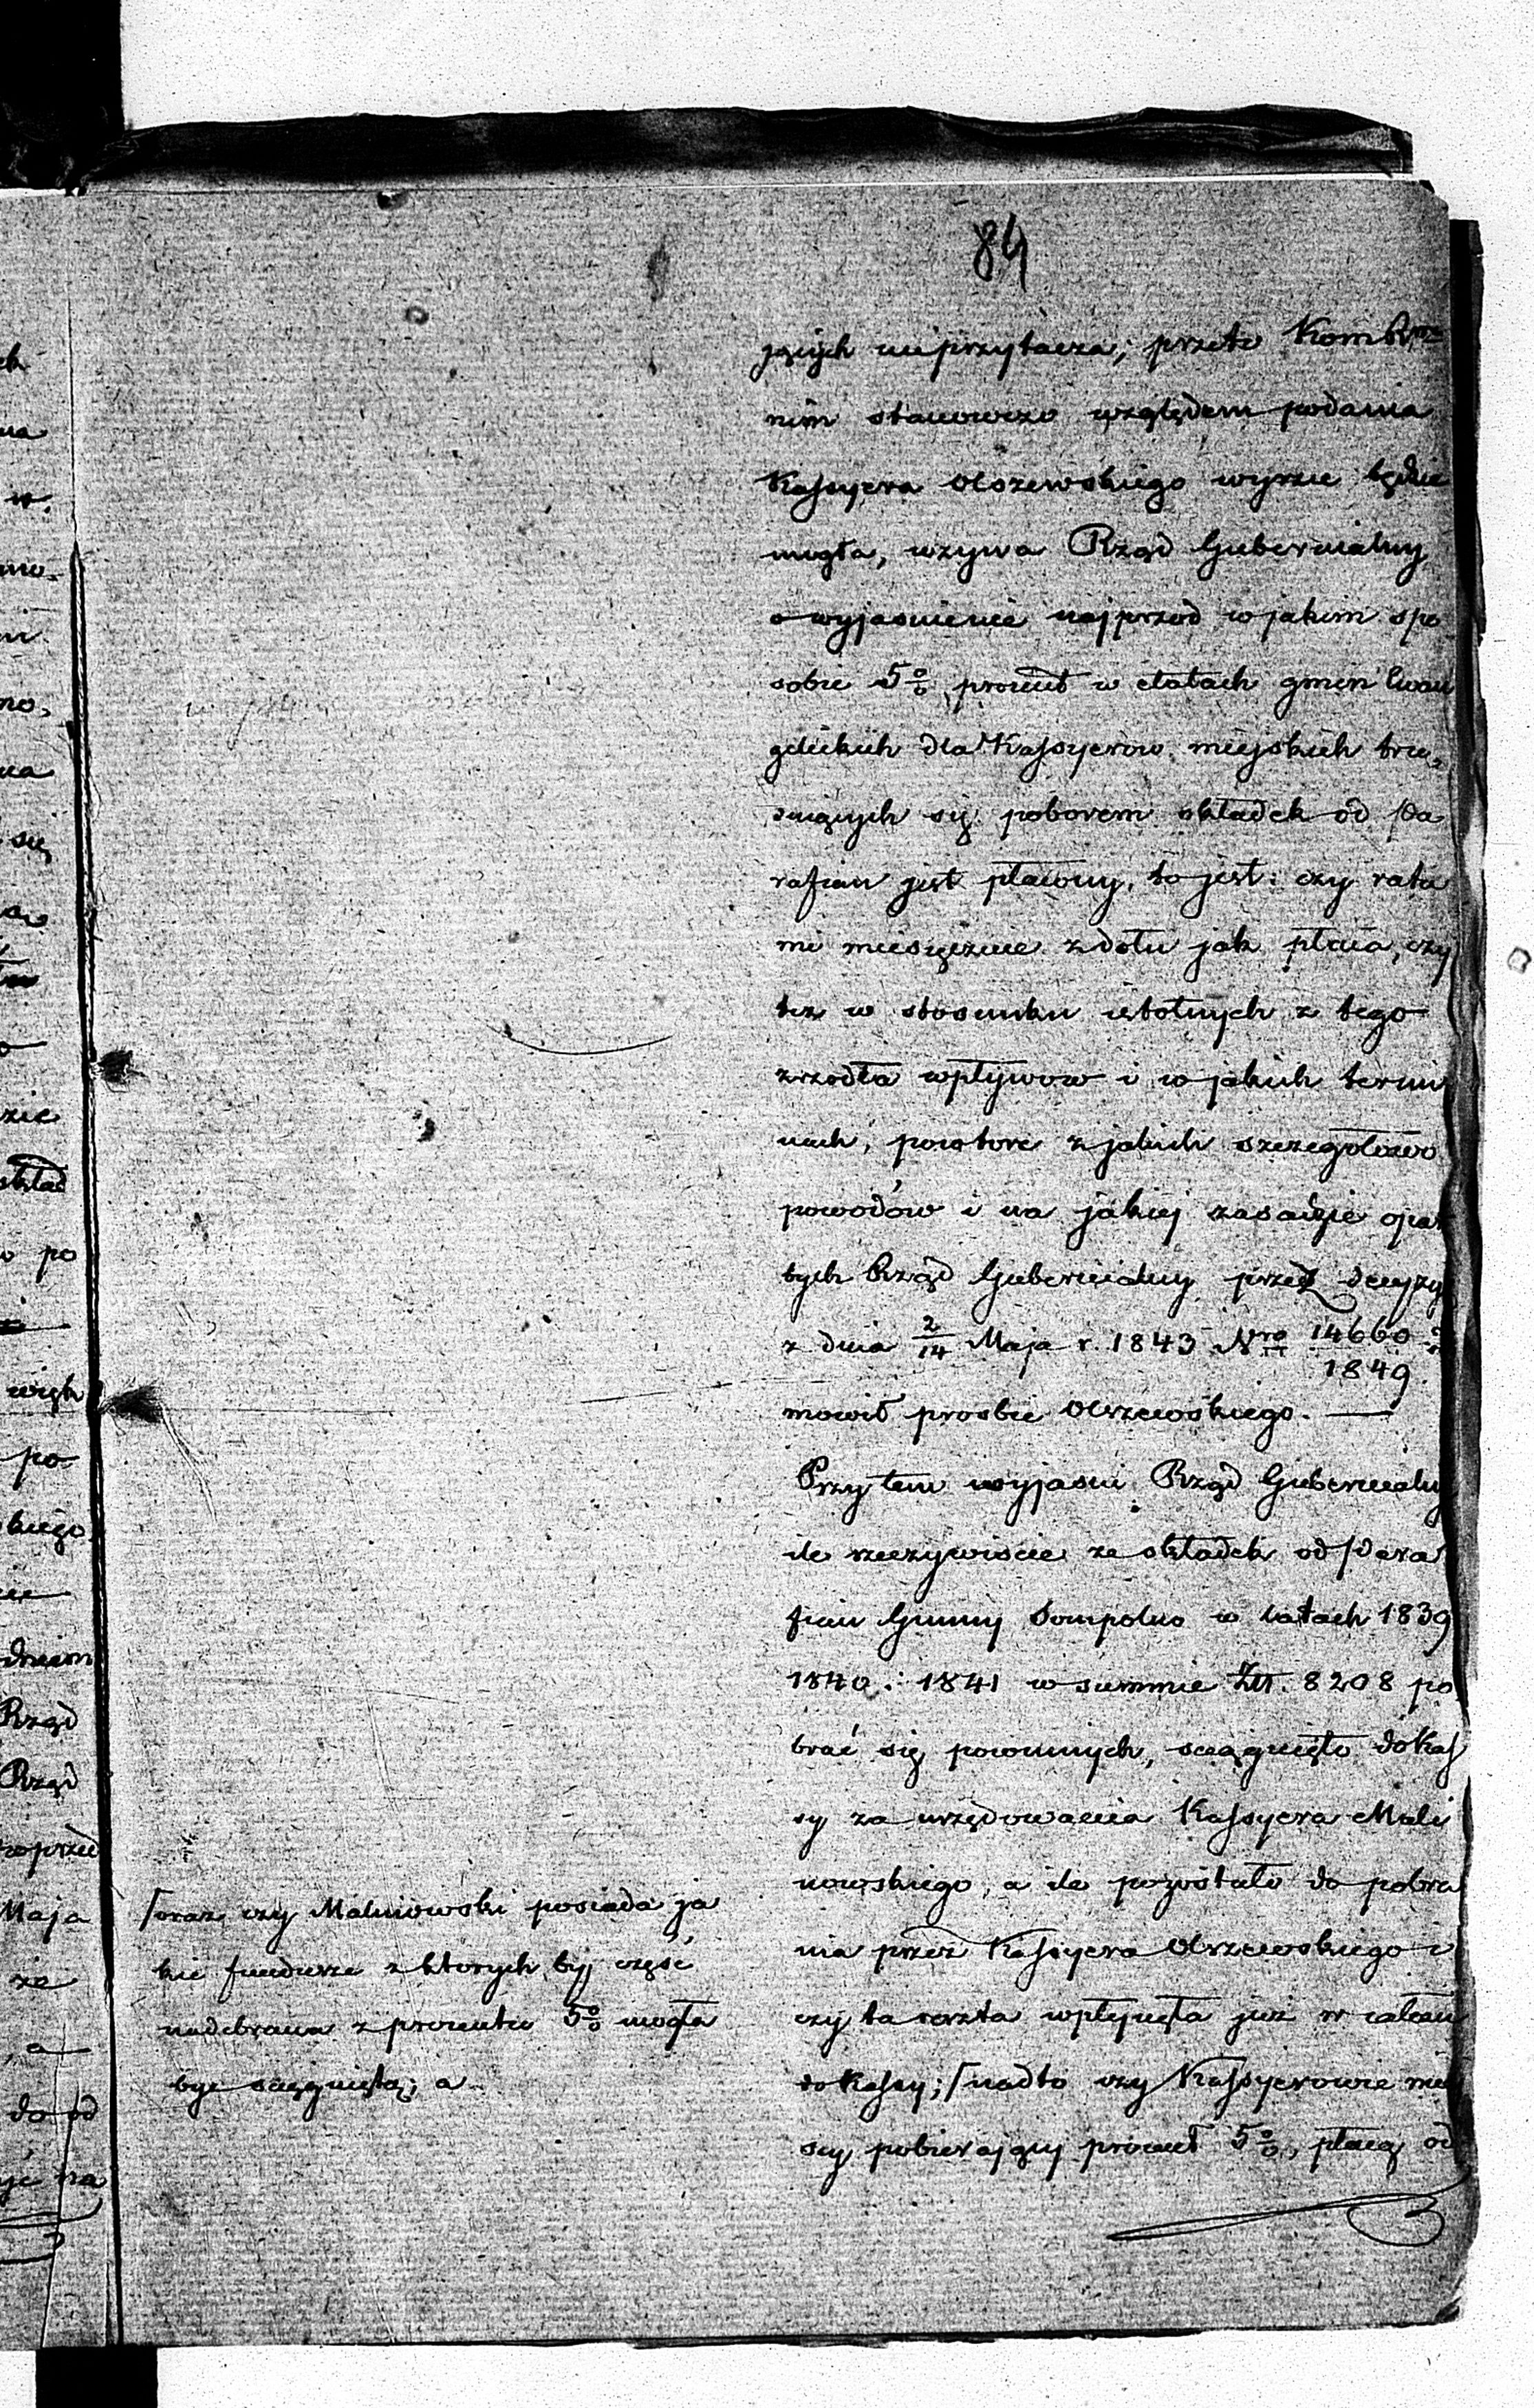 84
jących nieprzytacza; przeto Kom Rzą
nim stanowczo względem podania
Kassyera Olszewskiego wyrzec będzie
mogła, wzywa Rząd Gubernialny
o wyjasnienie najprzod w jakim spo
sobie 5% procent w etatach gmin Ewan
gelickich dla Kassyerow miejskich tru„
dniących się poborem składek od Pa
rafian jest płacony, to jest: czy rata
mi miesięcznie z dołu jak płaca, czy
tez w stosunku istotnych z tego
zrzodła wpływow i w jakich termi
nach, powtore z jakich szczegolowo
powodów i na jakiej zasadzie opar
tych Rząd Gubernialny przez decyzyą
z dnia 2/14 Maja r. 1843 Nro 14660/1849
mowił prosbie Olszewskiego. —
Przytem wyjasni Rząd Gubernialny
ile rzeczywiscie ze składek od Para
fian Gminy Sompolno w latach 1839
1840 i 1841 w summie Złt. 8208 po
brać się powinnych, sciągnięto do Kas
sy za urzędowania Kassyera Mali
nowskiego, a ile pozostało do pobra
nia przez Kassyera Olszewskiego i
czy ta reszta wpłynęła już w całości
do Kassy; ⌈nadto czy Kassyerowie miej
scy pobierający procent 5%, płacą od
⌈oraz czy Malinowski posiada ja
kie fundusze z ktorych by część
nadebrana z procentu 5% mogła
być sciągniętą; a